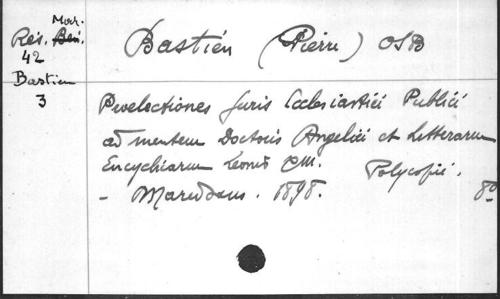 Mar.
Rés. Ben.
42
Bastien
3
Bastien (Pierre) OSB
Praelectiones Juris Ecclesiastici Publici
ad mentem Doctoris Angelici et Litterarum
Encycliarum Leonis PM. Polycopié.
- Maredsous. 1898. 8º